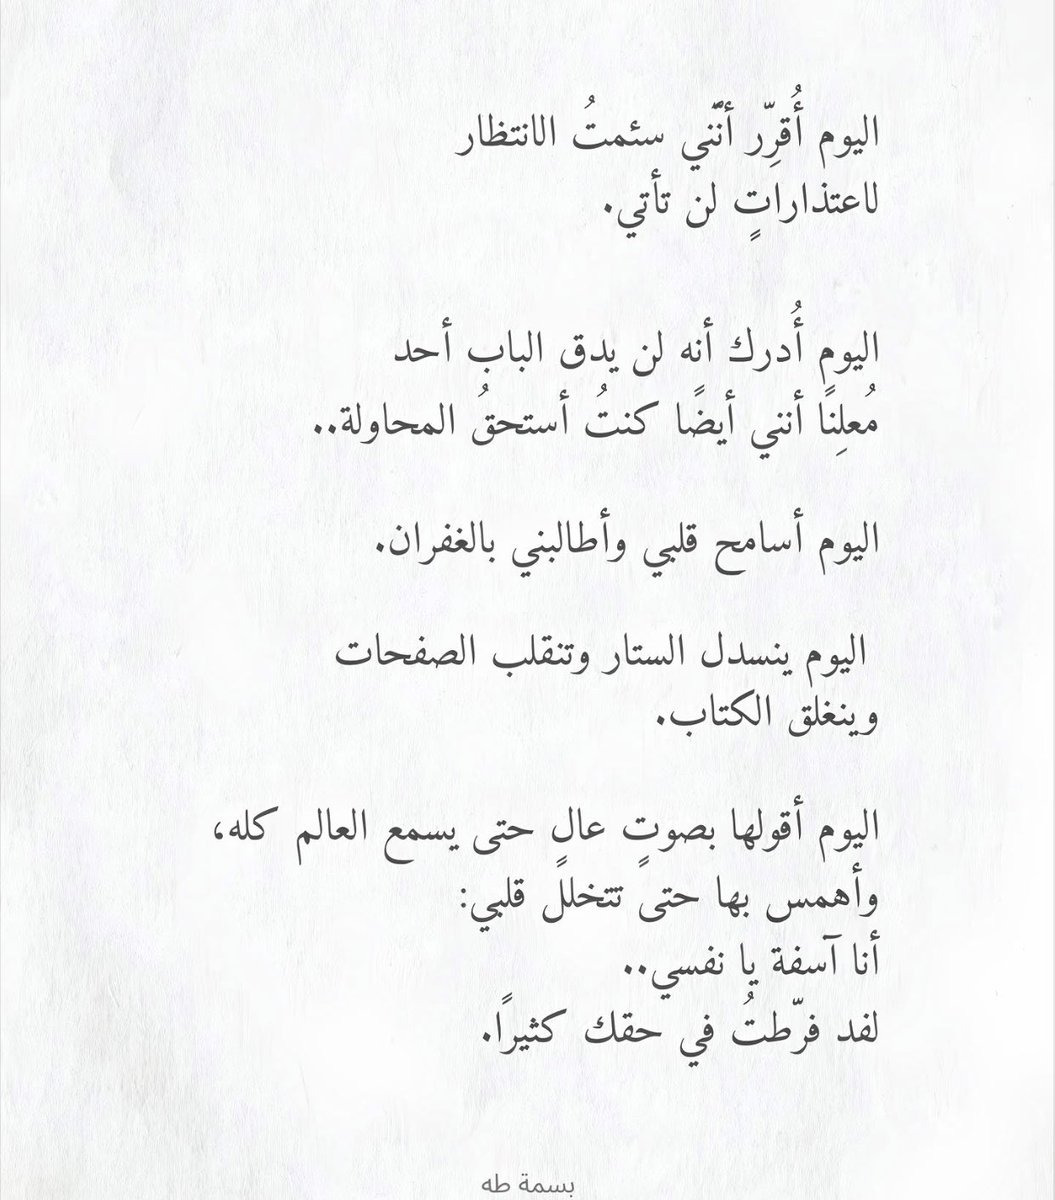 اليوم أُقرِّر أنّني سئمتُ الانتظار
لاعتذاراتٍ لن تأتي.
اليوم أُدرك أنه لن يدق الباب أحد
مُعلِنًا أنني أيضًا كنتُ أستحقُ المحاولة..
اليوم أسامح قلبي وأطالبني بالغفران.
اليوم ينسدل الستار وتنقلب الصفحات
وينغلق الكتاب.
اليوم أقولها بصوتٍ عالٍ حتى يسمع العالم كله،
وأهمس بها حتى تتخلل قلبي:
أنا آسفة يا نفسي..
لفد فرّطتُ في حقك كثيرًا.
بسمة طه